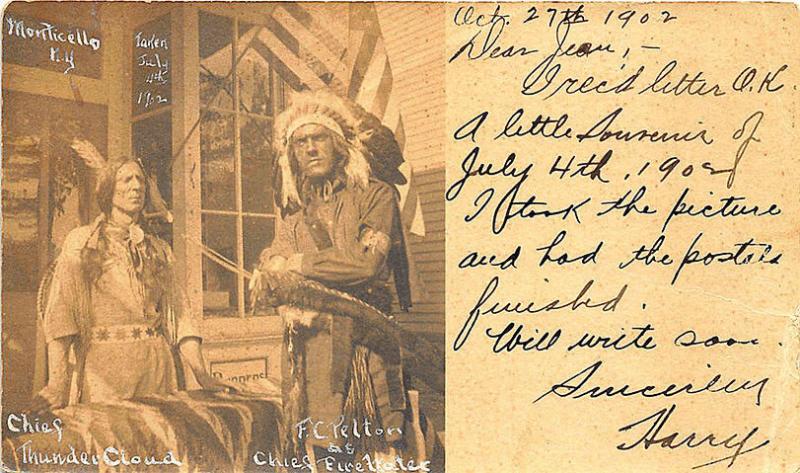 Monticello
N.Y
Taken
July
4th
1902
Chief
Thunder Cloud
F.C. Pelton
as
Chief Fire Water
Oct. 27th 1902
Dear Jean, –
I rec'd letter O.K.
A little Souvenir of
July 4th, 1902
I took the picture
and had the postals
finished.
Will write soon.
Sincerely
Harry